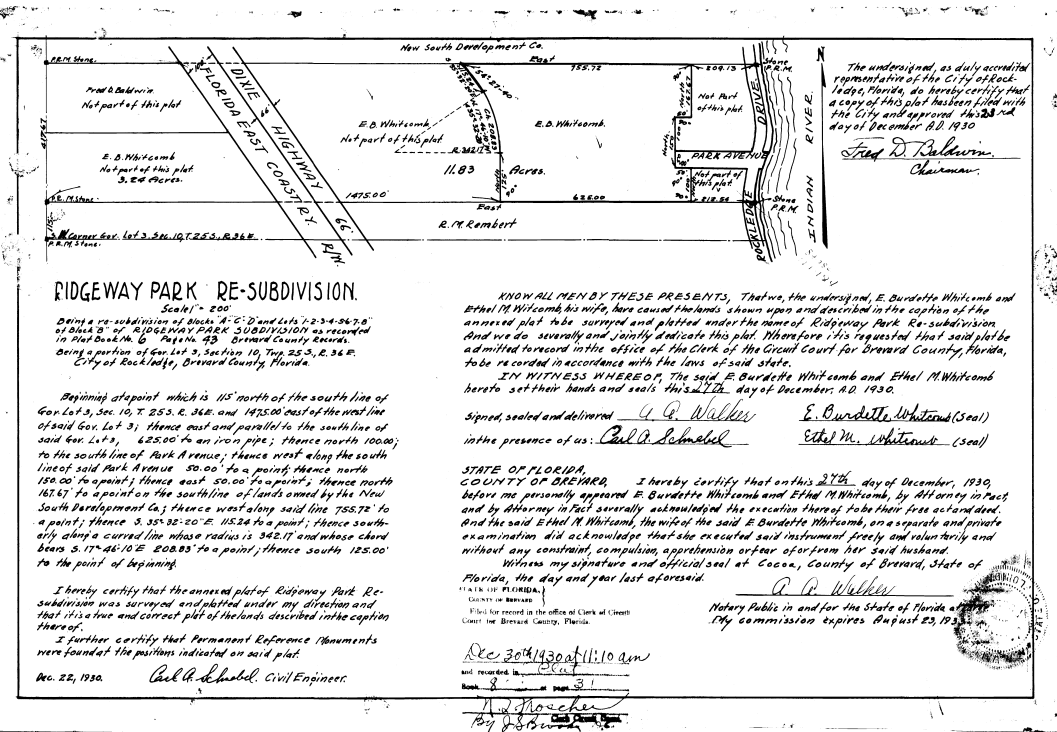 New South Development Co.
East
755.72
209.13
Stone
P.R.M.
P.R.M. Stone.
Fred D. Baldwin.
Not part of this plat
417.67
DIXIE HIGHWAY
66'
FLORIDA EAST COAST RY.
66' R/W.
E.B. Whitcomb,
Not part of this plat
E.B. Whitcomb.
Not Part
of this plat.
North
167.67
150.00
PARK AVENUE
Not part of
this plat.
R. 342.17
11.83 Acres.
North
E.B. Whitcomb
Not part of this plat.
3.24 Acres.
P.R.M. Stone.
1475.00'
East
625.00
212.54
Stone
P.R.M.
R.M. Rembert
115'
Corner Gov. Lot 3. Sec. 10, T. 25 S., R. 36 E.
P.R.M. Stone.
ROCKLEDGE DRIVE
INDIAN RIVER.
N
The undersigned, as duly accredited
representative of the City of Rock-
ledge, Florida, do hereby certify that
a copy of this plat has been filed with
the City and approved this 23rd
day of December A.D. 1930
Fred D. Baldwin.
Chairman.
RIDGEWAY PARK RE-SUBDIVISION.
Scale 1" = 200'
Being a re-subdivision of Blocks "A"-"C"-"D" and Lots 1-2-3-4-5-6-7-8
of Block "B" of RIDGEWAY PARK SUBDIVISION as recorded
in Plat Book No. 6 Page No. 43 Brevard County Records.
Being a portion of Gov. Lot 3, Section 10, Twp. 25 S., R. 36 E.
City of Rockledge, Brevard County, Florida.
Beginning at a point which is 115' north of the south line of
Gov. Lot 3, Sec. 10, T. 25 S. R. 36 E. and 1475.00' east of the west line
of said Gov. Lot 3; thence east and parallel to the south line of
said Gov. Lot 3, 625.00' to an iron pipe; thence north 100.00;
to the south line of Park Avenue; thence west along the south
line of said Park Avenue 50.00' to a point; thence north
150.00' to a point; thence east 50.00' to a point; thence north
167.67' to a point on the south line of lands owned by the New
South Development Co.; thence west along said line 755.72' to
a point; thence S. 35°-32'-20" E. 115.24 to a point; thence south-
erly along a curved line whose radius is 342.17' and whose chord
bears S. 17°-46'-10" E 208.83' to a point; thence south 125.00'
to the point of beginning.
I hereby certify that the annexed plat of Ridgeway Park Re-
subdivision was surveyed and platted under my direction and
that it is a true and correct plat of the lands described in the caption
thereof.
I further certify that Permanent Reference Monuments
were found at the positions indicated on said plat.
Dec. 22, 1930. Carl A. Schnabel. Civil Engineer.
KNOW ALL MEN BY THESE PRESENTS, That we, the undersigned, E. Burdette Whitcomb and
Ethel M. Witcomb, his wife, have caused the lands shown upon and described in the caption of the
annexed plat to be surveyed and platted under the name of Ridgeway Park Re-subdivision
And we do severally and jointly dedicate this plat. Wherefore it is requested that said plat be
admitted to record in the office of the Clerk of the Circuit Court for Brevard County, Florida,
to be recorded in accordance with the laws of said state.
IN WITNESS WHEREOF, The said E. Burdette Whitcomb and Ethel M. Whitcomb
hereto set their hands and seals this 27th day of December. A.D. 1930.
Signed, sealed and delivered A. A. Walker E. Burdette Whitcomb (Seal)
in the presence of us: Carl A. Schnabel Ethel M. Whitcomb (Seal)
STATE OF FLORIDA,
COUNTY OF BREVARD, I hereby certify that on this 27th day of December, 1930,
before me personally appeared E. Burdette Whitcomb and Ethel M. Whitcomb, by Attorney in Fact,
and by Attorney in Fact severally acknowledged the execution thereof to be their free act and deed.
And the said Ethel M. Whitcomb, the wife of the said E. Burdette Whitcomb, on a separate and private
examination did acknowledge that she executed said instrument freely and voluntarily and
without any constraint, compulsion, apprehension or fear of or from her said husband.
Witness my signature and official seal at Cocoa, County of Brevard, State of
Florida, the day and year last aforesaid.
A. A. Walker
Notary Public in and for the State of Florida at
My commission expires August 23, 193
STATE OF FLORIDA,
COUNTY OF BREVARD
Filed for record in the office of Clerk of Circuit
Court for Brevard County, Florida.
Dec 30th 1930 at 11:10 am
and recorded in Plat
Book 8 at page 31
By
Clerk Circuit Court